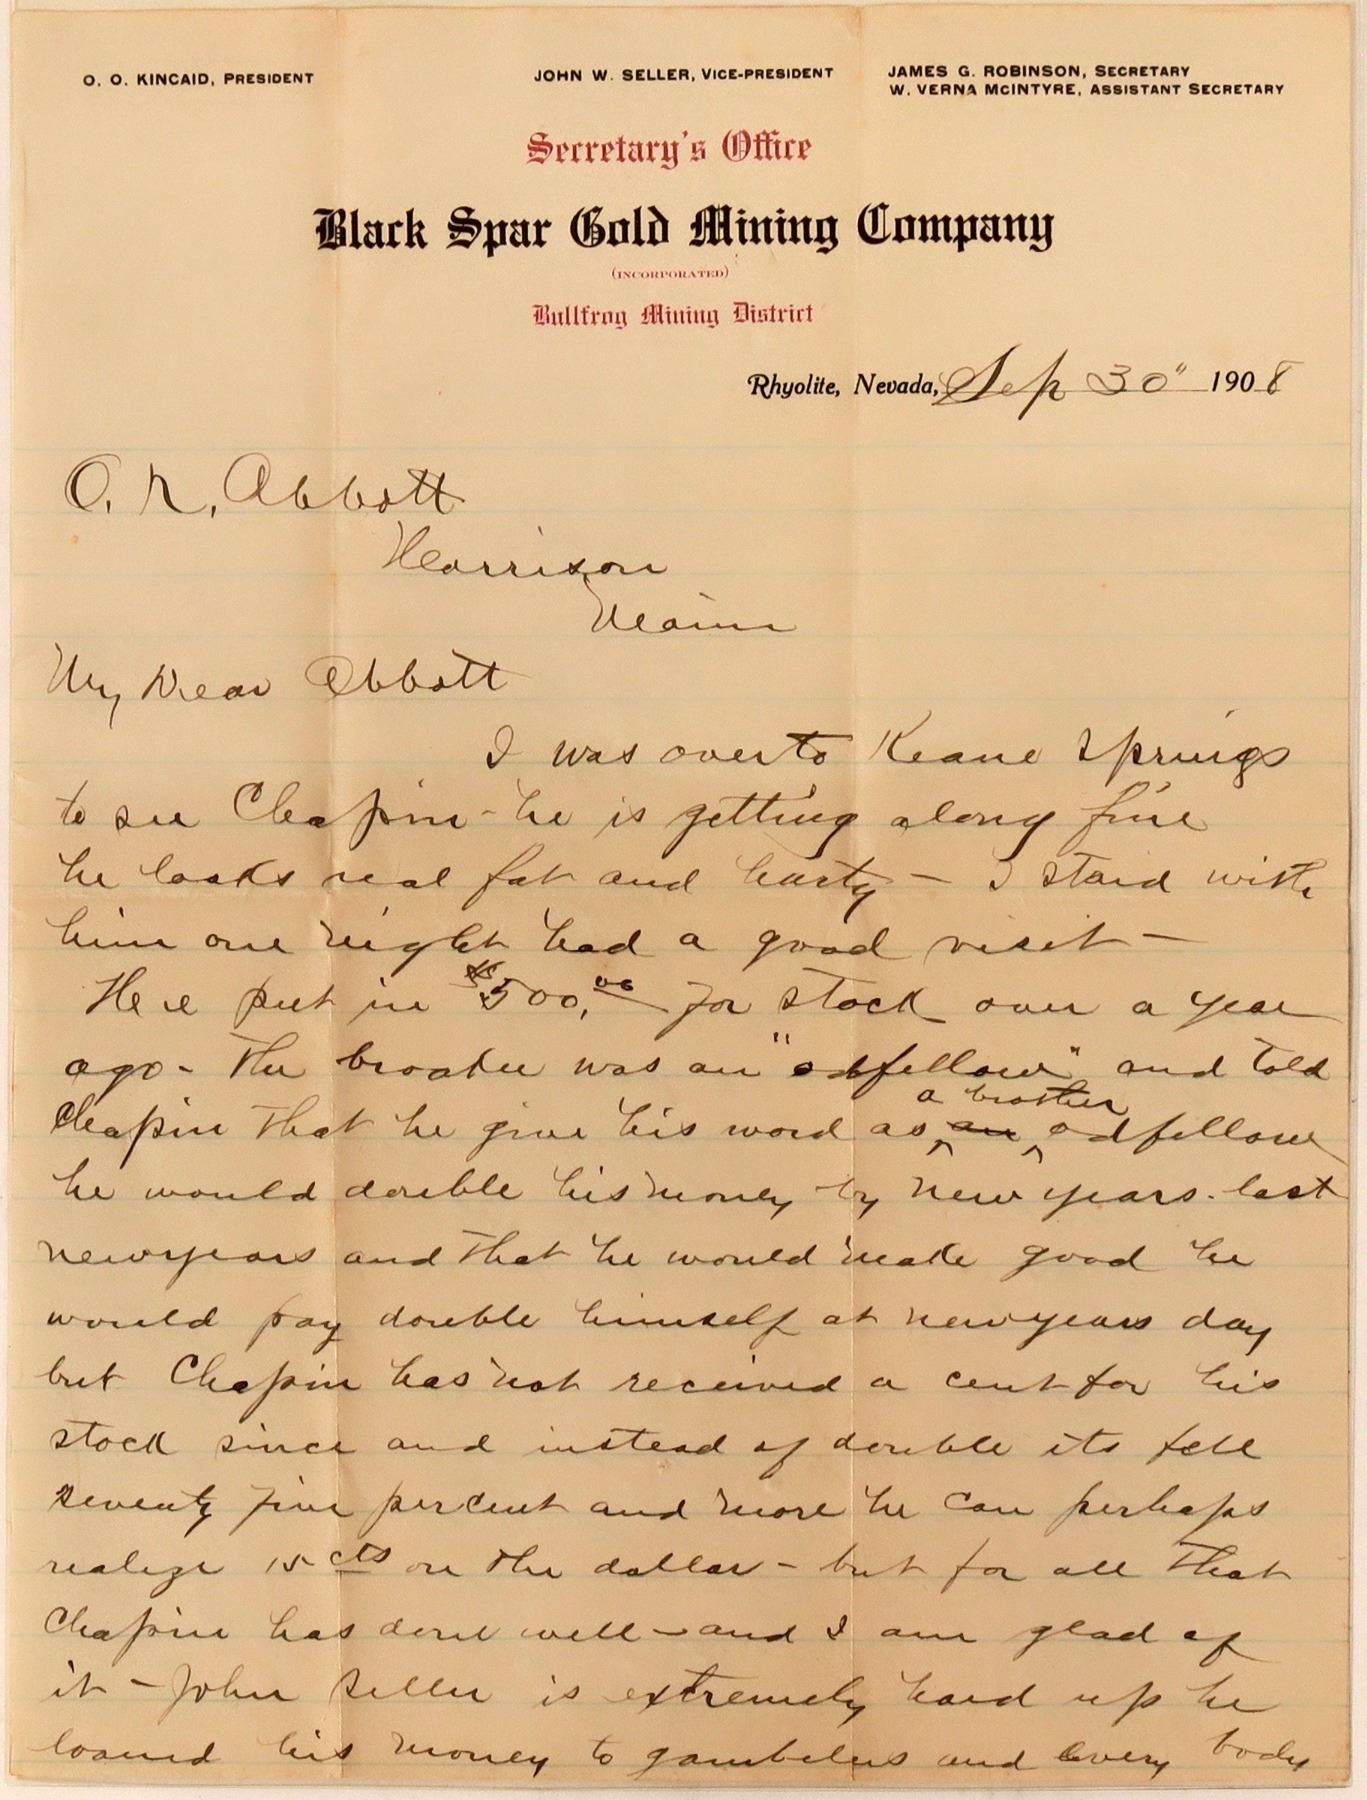 O. O. KINCAID, PRESIDENT
JOHN W. SELLER, VICE-PRESIDENT
JAMES G. ROBINSON, SECRETARY
W. VERNA MCINTYRE, ASSISTANT SECRETARY
Secretary's Office
Black Spar Gold Mining Company
(INCORPORATED)
Bullfrog Mining District
Rhyolite, Nevada, Sep 30" 1908
O. N. Abbott
Harrison
Maine
My Dear Abbott
I was over to Keane Springs
to see Chapin - he is getting along fine
he looks real fat and harty - I staid with
him one night had a good visit -
He put in $500,00 for stock over a year
ago - The broaker was an "odfellow" and told
Chapin that he give his word as an a brother odfellow
he would double his money by new years. last
newyears and that he would make good he
would pay double himself at newyears day
but Chapin has not received a cent for his
stock since and instead of double its fell
seventy five percent and more he can perhaps
realize 15 cts on the dollar - but for all that
Chapin has done well - and I am glad of
it - John Seller is extremely hard up he
loaned his money to gambelers and every body